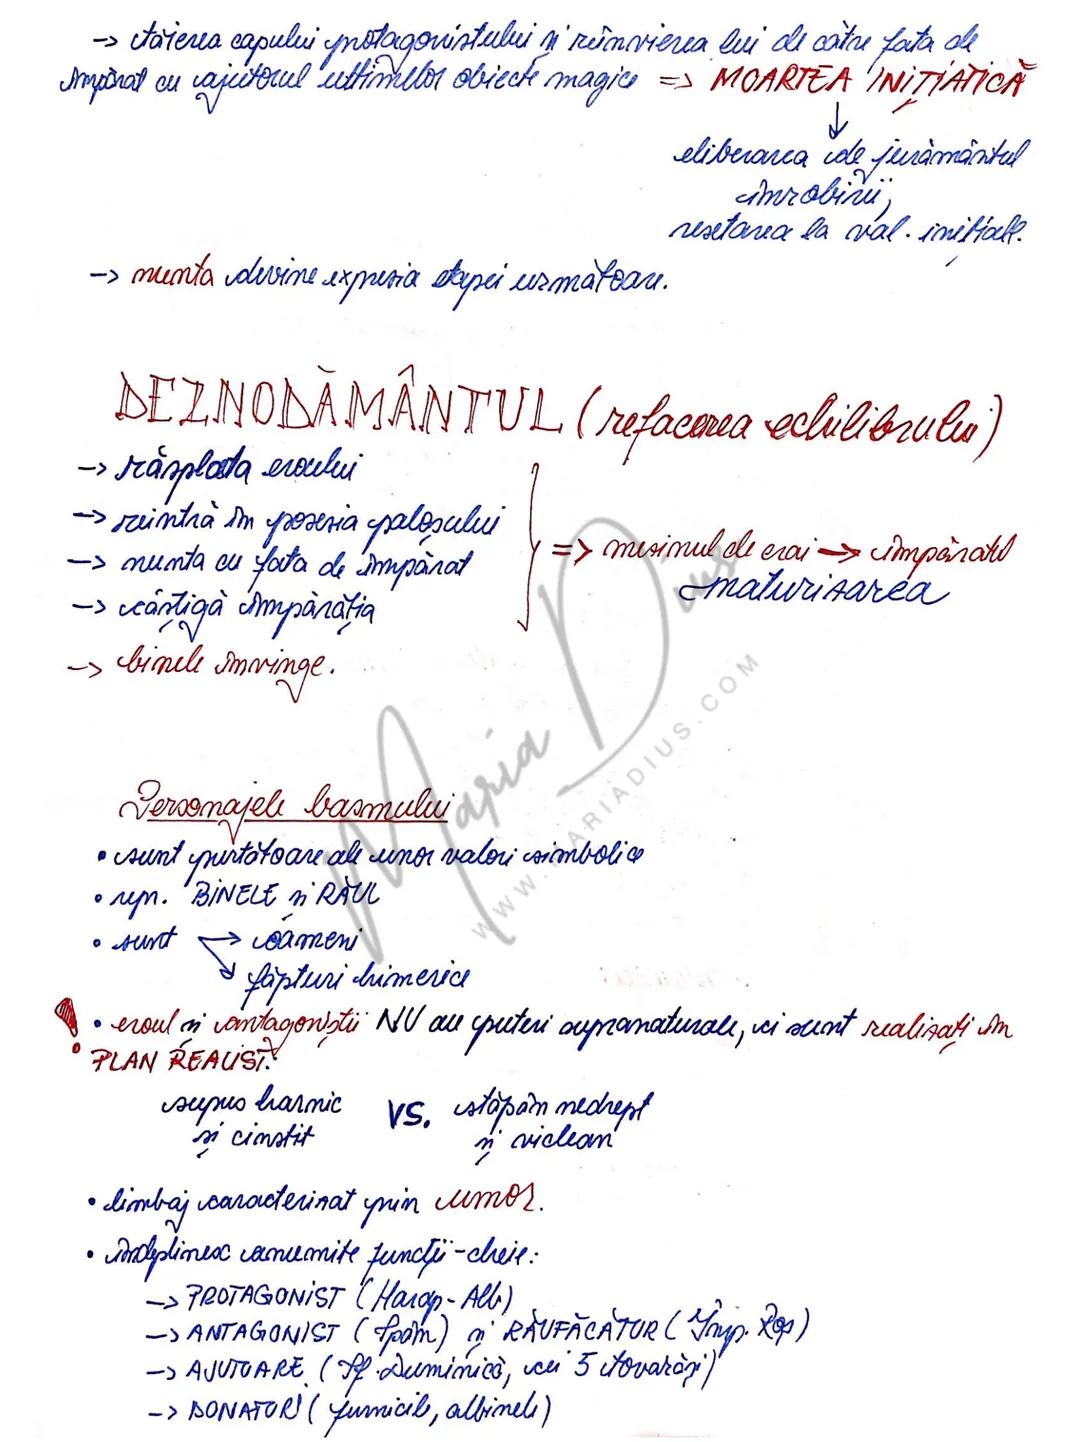 -> tăierea capului protagonistului și reînvierea lui de către fata de
împărat cu ajutorul ultimelor obiecte magice => MOARTEA INIȚIATICĂ
↓
eliberarea de jurământul
înrobirii,
resetarea la val. inițiale.
-> nunta devine expresia etapei următoare.
DEZNODĂMÂNTUL (refacerea echilibrului)
-> răsplata eroului
-> reintră în posesia paloșului
-> nunta cu fata de împărat
-> câștigă împărăția
=> mezinul de crai -> împăratul
maturizarea
-> binele învinge.
Personajele basmului
• sunt purtătoare ale unor valori simbolice
• repr. BINELE și RĂUL
• sunt -> oameni
-> făpturi himerice
! • eroul și antagoniștii NU au puteri supranaturale, ci sunt realizați în
PLAN REALIST:
supus harnic VS. stăpân nedrept
și cinstit și viclean
• limbaj caracterizat prin umor.
• îndeplinesc anumite funcții-cheie:
-> PROTAGONIST (Harap-Alb)
-> ANTAGONIST (Spân) și RĂUFĂCĂTOR (Împ. Roș)
-> AJUTOARE (Sf. Duminică, cei 5 tovarăși)
-> DONATORI (furnicile, albinele)
Maria Dius
WWW.MARIADIUS.COM